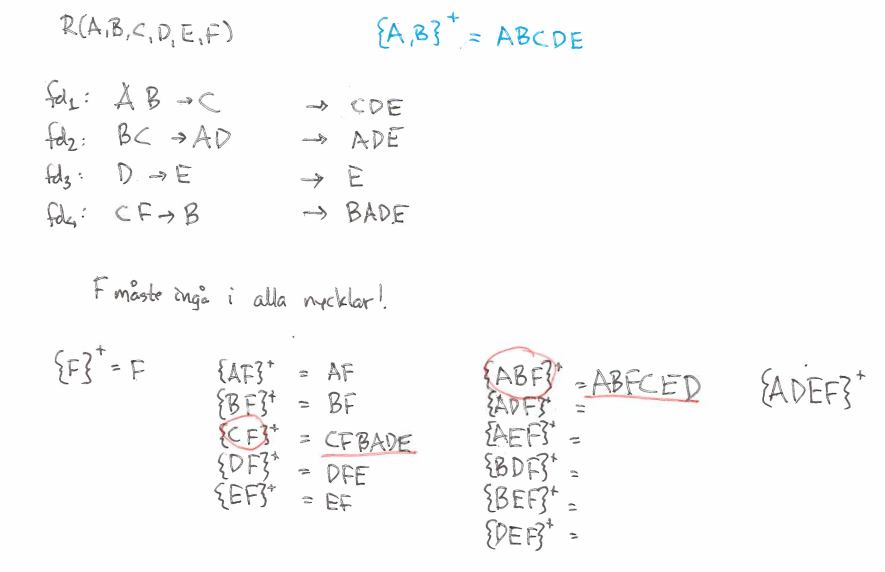 R(A,B,C,D,E,F)
{A,B}⁺ = ABCDE
fd₁: AB → C → CDE
fd₂: BC → AD → ADE
fd₃: D → E → E
fd₄: CF → B → BADE
F måste ingå i alla nycklar!
{F}⁺ = F
{AF}⁺ = AF
{BF}⁺ = BF
{CF}⁺ = CFBADE
{DF}⁺ = DFE
{EF}⁺ = EF
{ABF}⁺ = ABFCED
{ADF}⁺ =
{AEF}⁺ =
{BDF}⁺ =
{BEF}⁺ =
{DEF}⁺ =
{ADEF}⁺